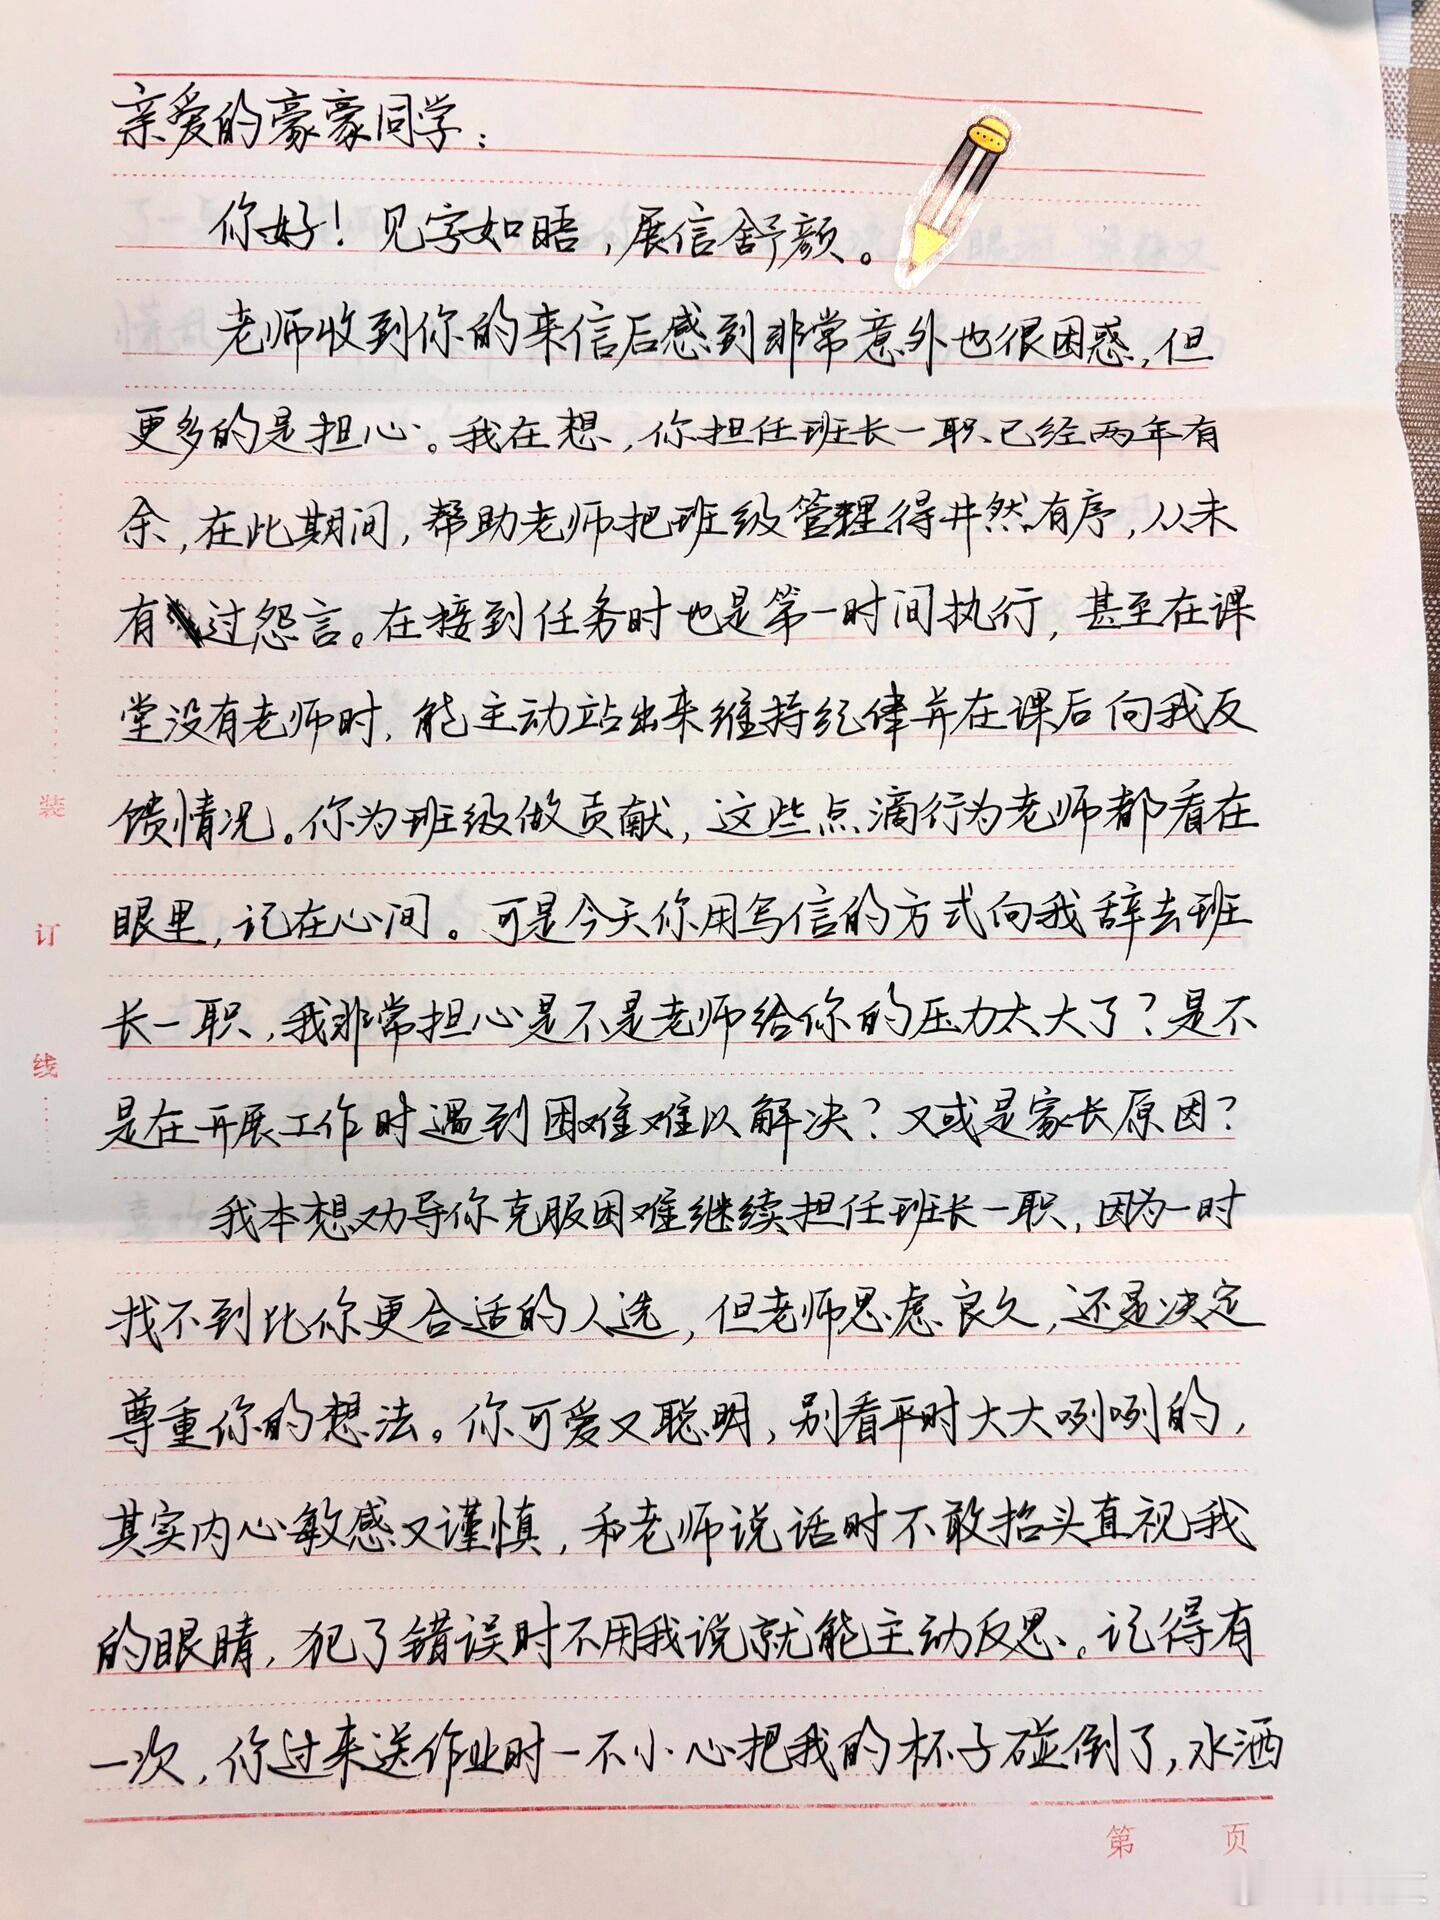 亲爱的豪豪同学：
你好！见字如晤，展信舒颜。
老师收到你的来信后感到非常意外也很困惑，但
更多的是担心。我在想，你担任班长一职已经两年有
余，在此期间，帮助老师把班级管理得井然有序，从未
有过怨言。在接到任务时也是第一时间执行，甚至在课
堂没有老师时，能主动站出来维持纪律并在课后向我反
馈情况。你为班级做贡献，这些点滴行为老师都看在
眼里，记在心间。可是今天你用写信的方式向我辞去班
长一职，我非常担心是不是老师给你的压力太大了？是不
是在开展工作时遇到困难难以解决？又或是家长原因？
我本想劝导你克服困难继续担任班长一职，因为一时
找不到比你更合适的人选，但老师思虑良久，还是决定
尊重你的想法。你可爱又聪明，别看平时大大咧咧的，
其实内心敏感又谨慎，和老师说话时不敢抬头直视我
的眼睛，犯了错误时不用我说就能主动反思。记得有
一次，你过来送作业时一不小心把我的杯子碰倒了，水洒
装
订
线
第 页